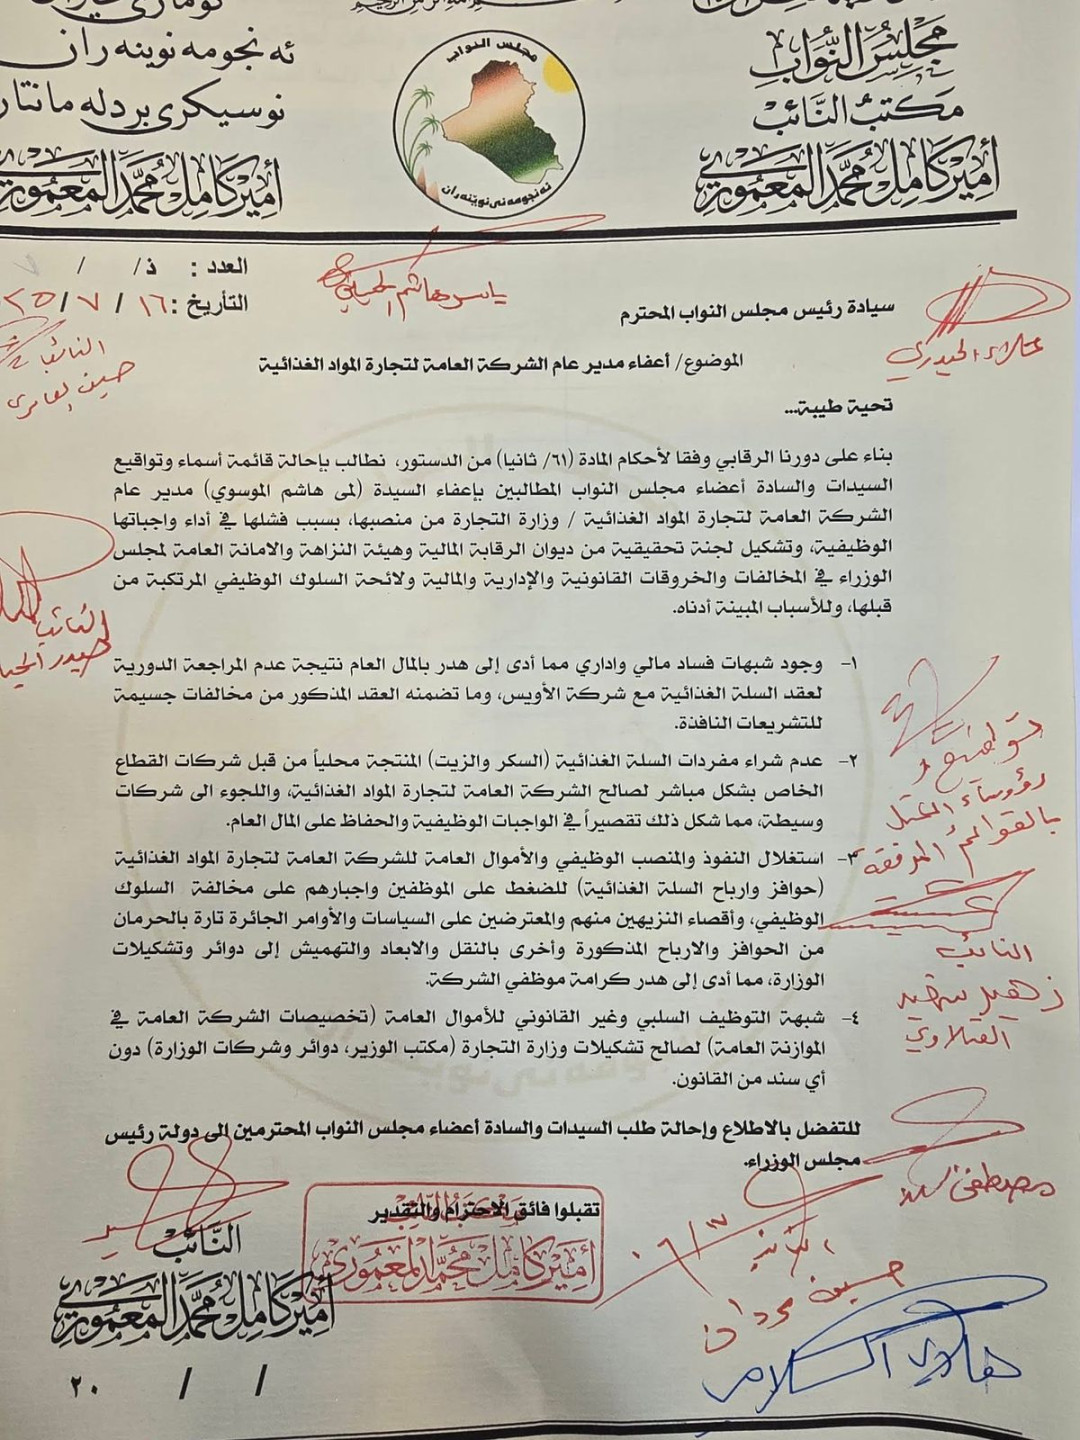 مجلس النواب
مكتب النائب
أمير كامل محمد المعموري
ئه نجومه نوينه ران
نوسيكرى بر دله مانتار
أمير كامل محمد المعموري
مجلس النواب
ئه نجومه نى نوينه ران
العدد : ذ/ /
التأريخ : ١٦ / ٧ / ٢٥
ياسر هاشم الحسيني
سيادة رئيس مجلس النواب المحترم
علاء الحيدري
النائب
حسين العامري
الموضوع/ أعفاء مدير عام الشركة العامة لتجارة المواد الغذائية
تحية طيبة...
بناء على دورنا الرقابي وفقا لأحكام المادة (٦١/ ثانيا) من الدستور، نطالب بإحالة قائمة أسماء وتواقيع
السيدات والسادة أعضاء مجلس النواب المطالبين بإعفاء السيدة (لمى هاشم الموسوي) مدير عام
الشركة العامة لتجارة المواد الغذائية / وزارة التجارة من منصبها، بسبب فشلها في أداء واجباتها
الوظيفية، وتشكيل لجنة تحقيقية من ديوان الرقابة المالية وهيئة النزاهة والامانة العامة لمجلس
الوزراء في المخالفات والخروقات القانونية والإدارية والمالية ولائحة السلوك الوظيفي المرتكبة من
قبلها، وللأسباب المبينة أدناه.
النائب
حيدر
١- وجود شبهات فساد مالي واداري مما أدى إلى هدر بالمال العام نتيجة عدم المراجعة الدورية
لعقد السلة الغذائية مع شركة الأويس، وما تضمنه العقد المذكور من مخالفات جسيمة
للتشريعات النافذة.
٢- عدم شراء مفردات السلة الغذائية (السكر والزيت) المنتجة محلياً من قبل شركات القطاع
الخاص بشكل مباشر لصالح الشركة العامة لتجارة المواد الغذائية، واللجوء الى شركات
وسيطة، مما شكل ذلك تقصيراً في الواجبات الوظيفية والحفاظ على المال العام.
٣- استغلال النفوذ والمنصب الوظيفي والأموال العامة للشركة العامة لتجارة المواد الغذائية
(حوافز وارباح السلة الغذائية) للضغط على الموظفين واجبارهم على مخالفة السلوك
الوظيفي، وأقصاء النزيهين منهم والمعترضين على السياسات والأوامر الجائرة تارة بالحرمان
من الحوافز والارباح المذكورة وأخرى بالنقل والابعاد والتهميش إلى دوائر وتشكيلات
الوزارة، مما أدى إلى هدر كرامة موظفي الشركة.
٤- شبهة التوظيف السلبي وغير القانوني للأموال العامة (تخصيصات الشركة العامة في
الموازنة العامة) لصالح تشكيلات وزارة التجارة (مكتب الوزير، دوائر وشركات الوزارة) دون
أي سند من القانون.
رؤوساء الكتل
بالقوائم المرفقة
النائب
زهير شهيد
الفتلاوي
للتفضل بالاطلاع وإحالة طلب السيدات والسادة أعضاء مجلس النواب المحترمين إلى دولة رئيس
مجلس الوزراء.
مصطفى سند
تقبلوا فائق الاحترام والتقدير
مكتب النائب
أمير كامل محمد المعموري
النائب
أمير كامل محمد المعموري
/ / ٢٠
النائب
حسين مردان
هادي السلامي